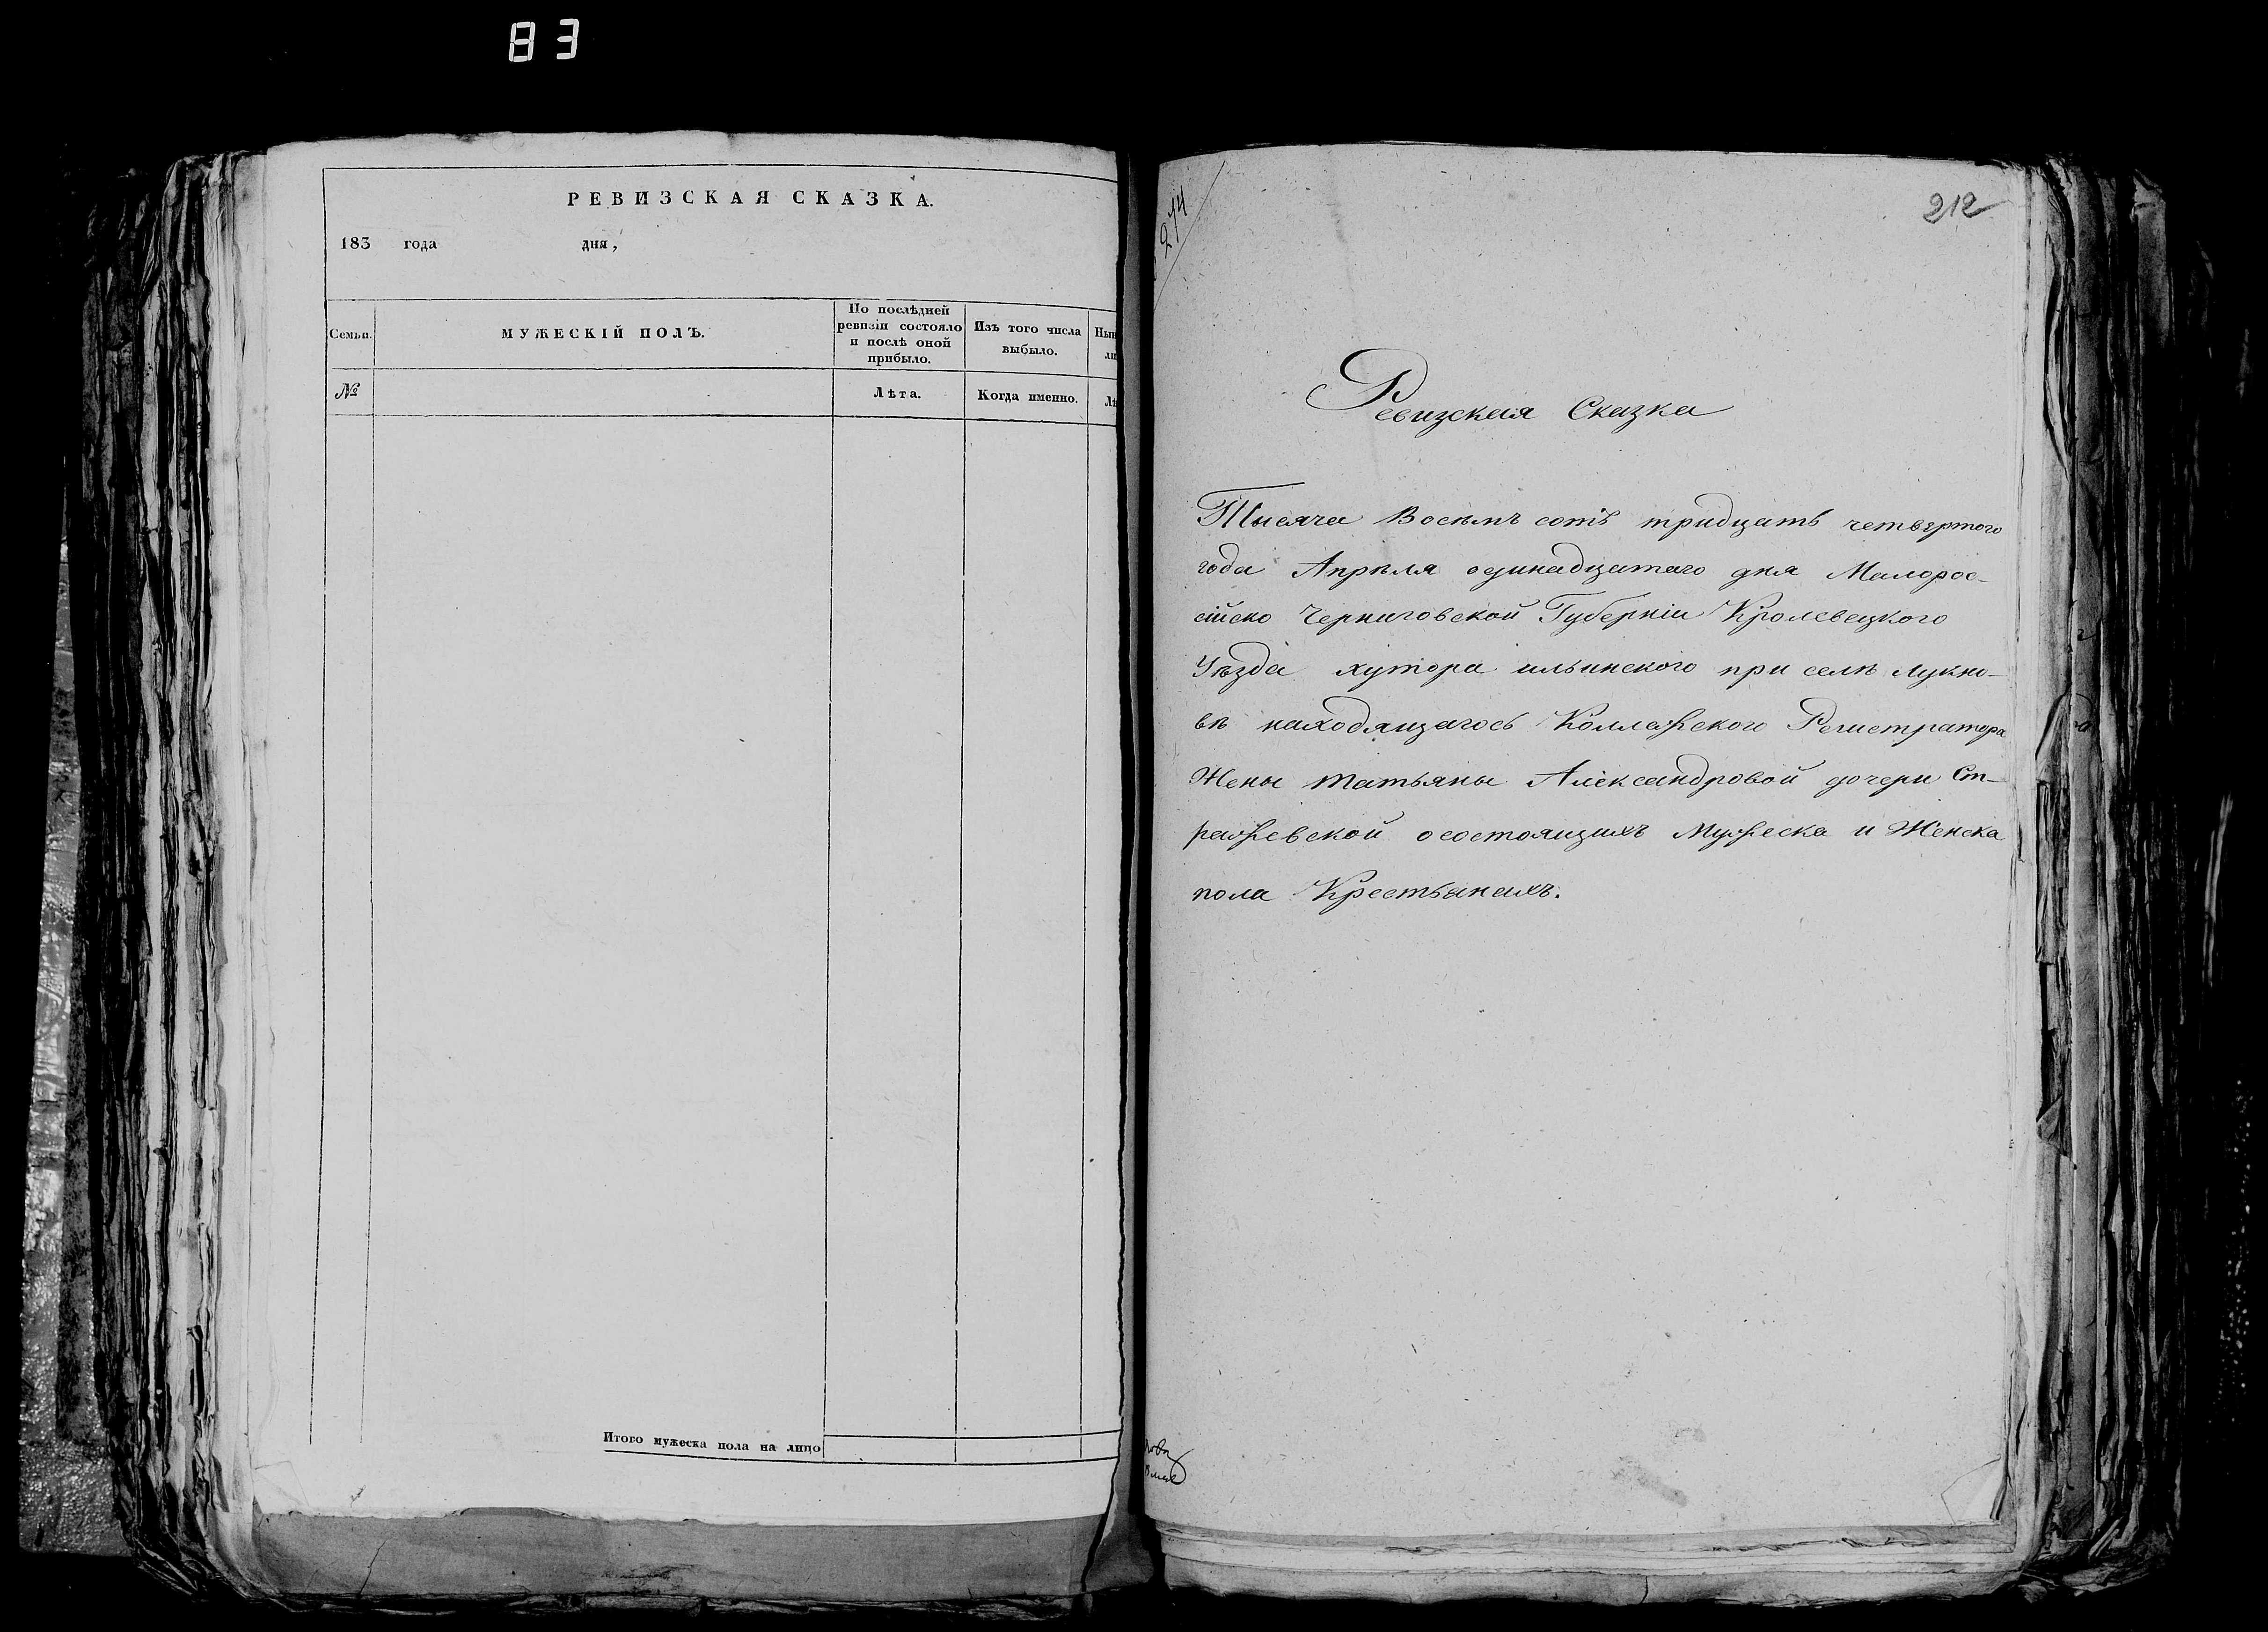 83
РЕВИЗСКАЯ СКАЗКА.
183 года дня,
Семьи.
МУЖЕСКІЙ ПОЛЪ.
По послѣдней
ревизіи состояло
и послѣ оной
прибыло.
Изъ того числа
выбыло.
№
Лѣта.
Когда именно.
Итого мужеска пола на лицо
274
212
Ревизская Сказка
Тысяча Восемъ сотъ тридцать четвертого
года Апрѣля одинадцатаго дня Малорос-
сійско Черниговской Губерніи Кролевецкого
Уѣзда хутора ильинского при селѣ Лукно-
вѣ находящагось Коллежского Регистратора
Жены Татьяны Александровой дочери Ст-
ражевской осостоящихъ Мужеска и Женска
пола Крестьянахъ.